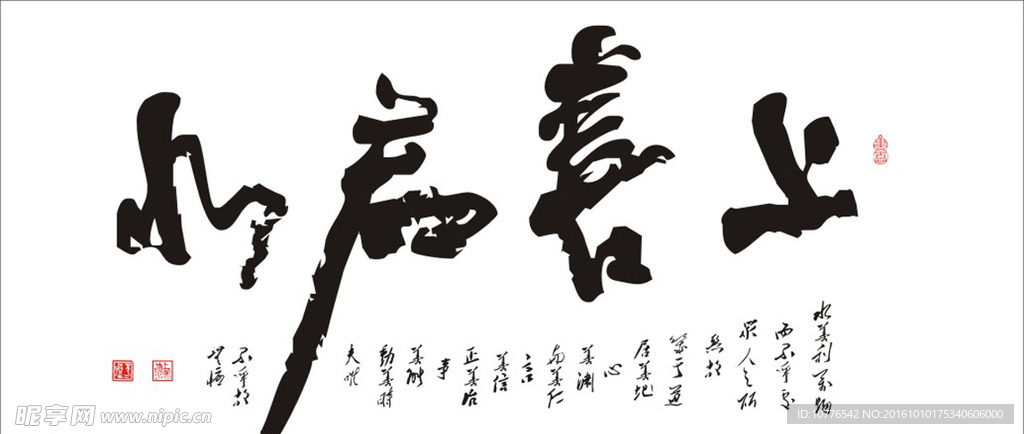 上善若水
水善利萬物
而不爭處
眾人之所
惡故
幾于道
居善地
心
善淵
與善仁
言
善信
正善治
事
善能
動善時
夫唯
不爭故
昵享网 www.nipic.cn
ID:10776542 NO:20161010175340606000